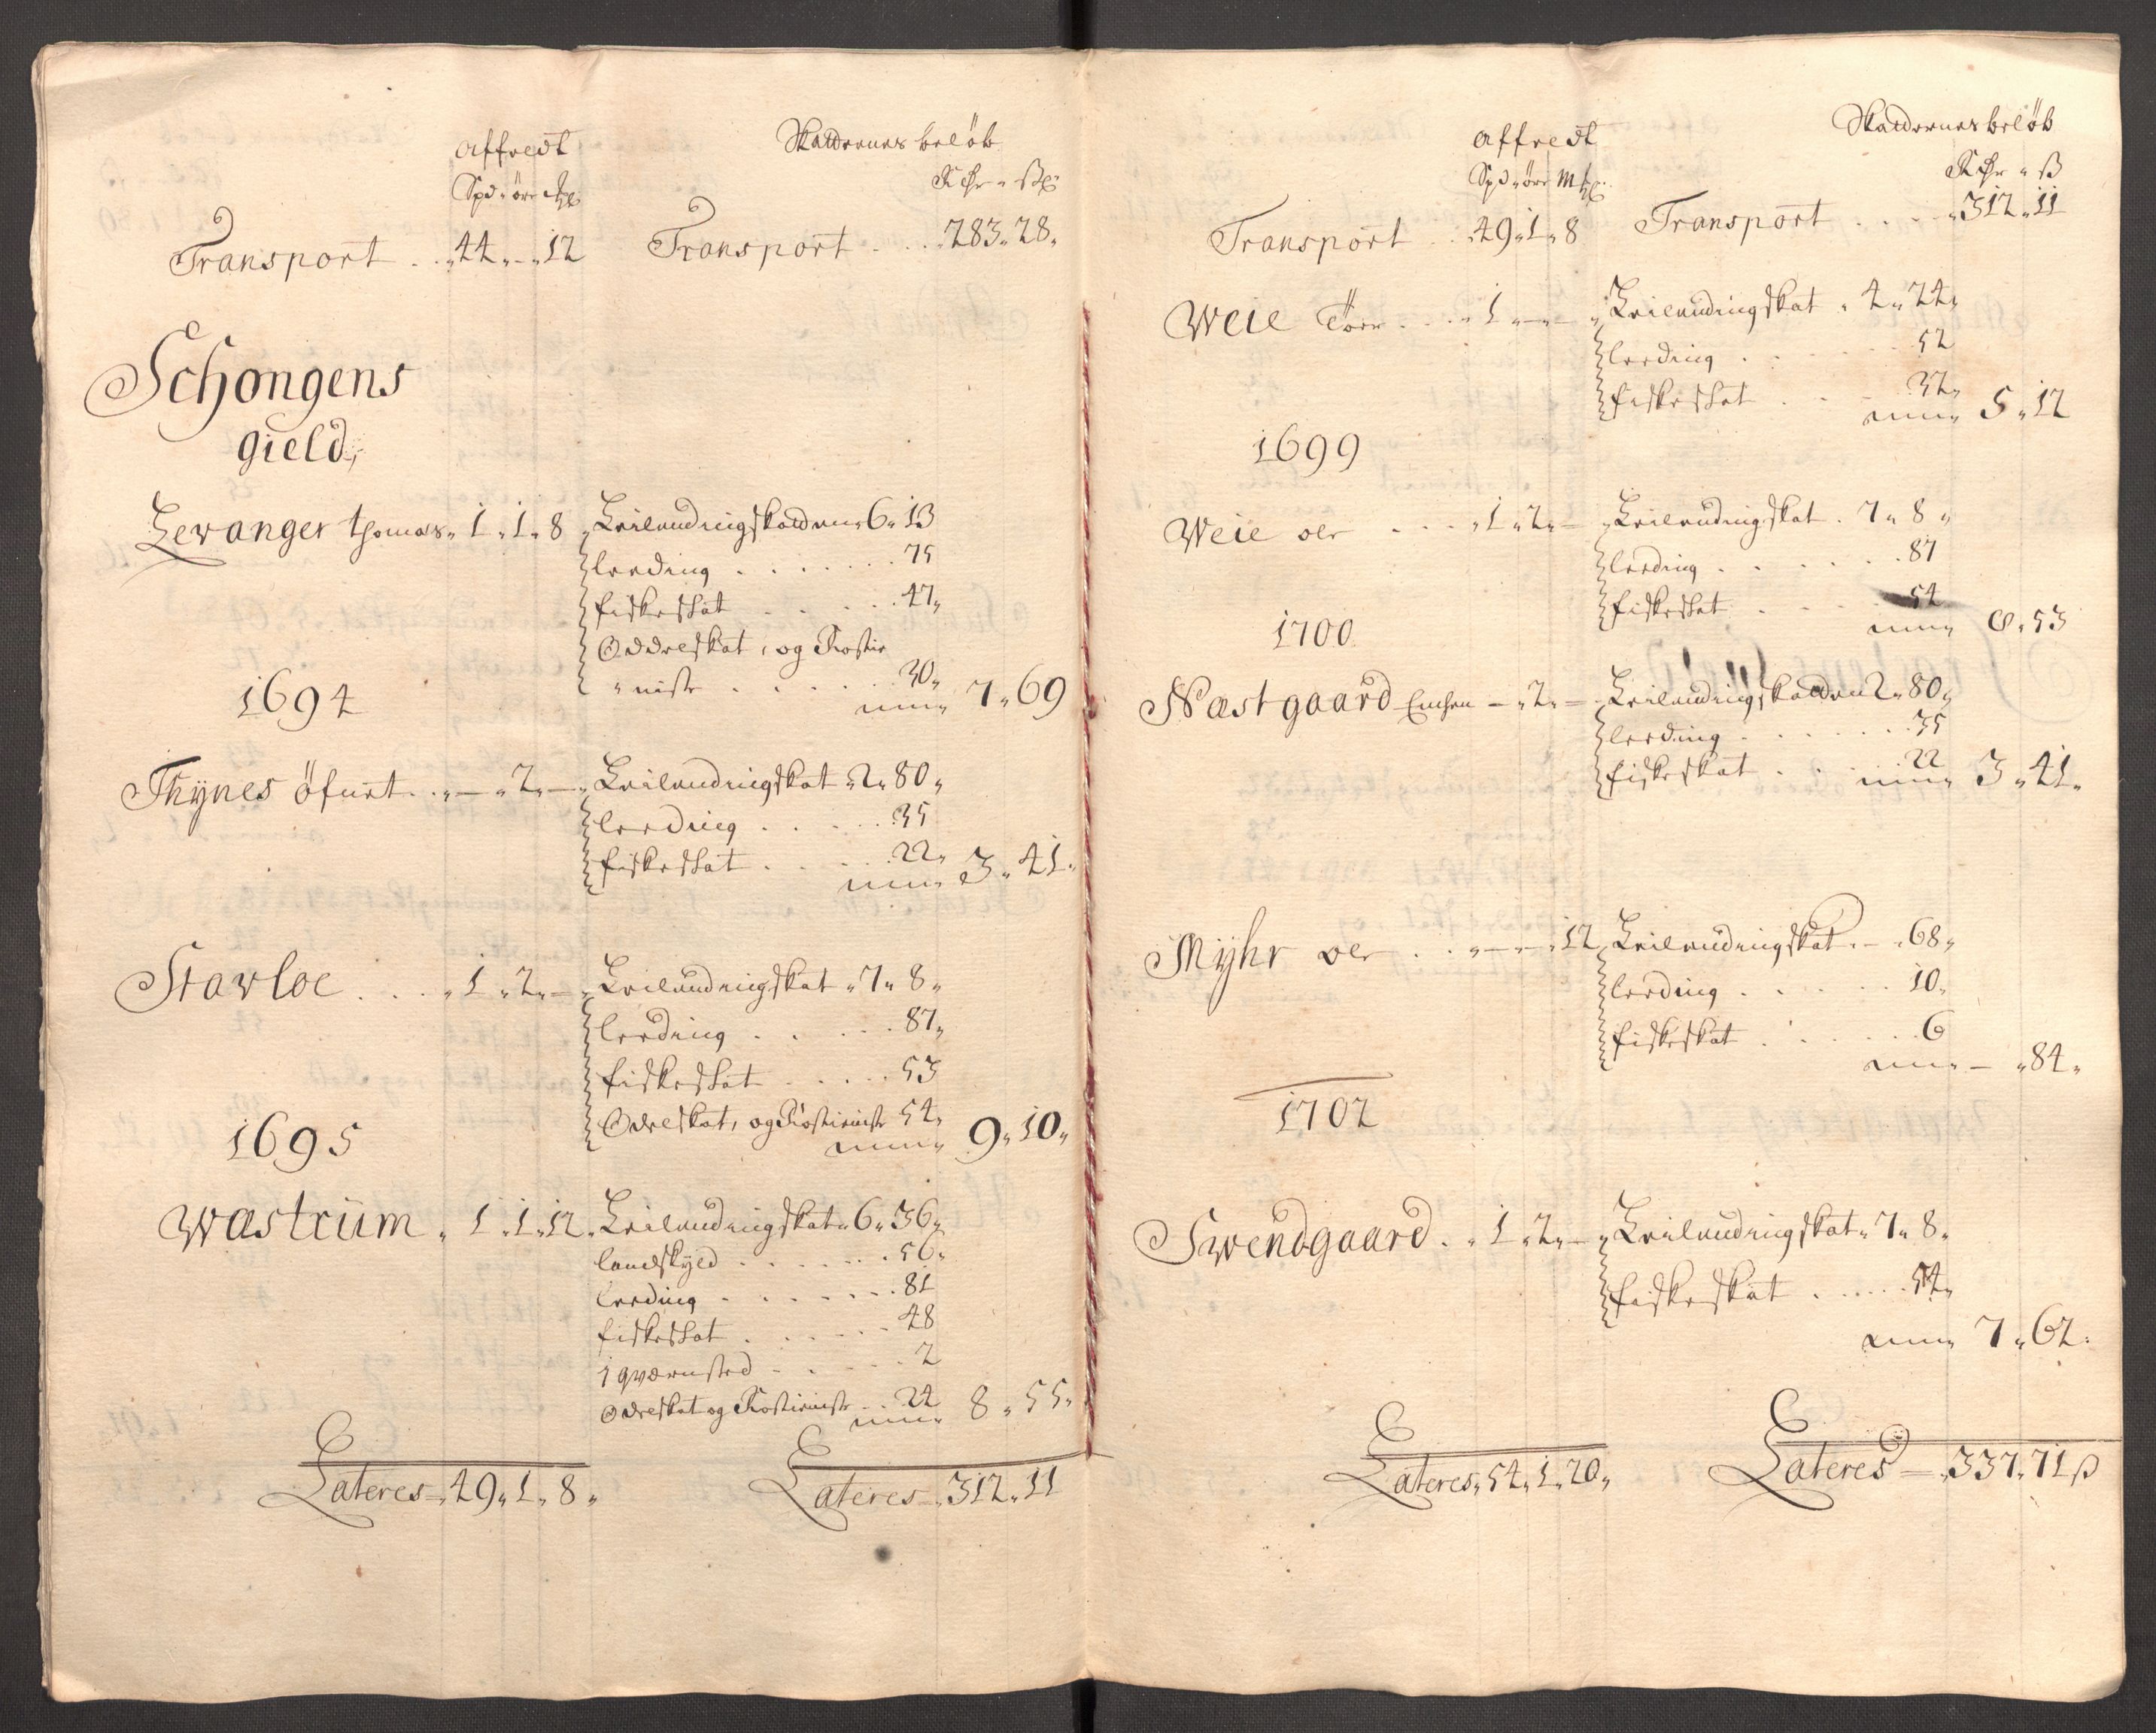 affrecdt
Skatternes beløb
Spd " ör " Mkl
Rdr " ß
Transport . . " 44 " - " 12
Transport . . . 283 " 28 "
Schongens
gield,
Levanger thomas " 1 " 1 " 8 " Leilendingskatten 6 " 13
leeding . . . . . . . 75
fiskeskat . . . . . 47 "
Oddreskat, og Rostie
" nist . . . . . . 30 "
7 " 69
1694
Thÿnes öfuret . . " - " 2 " - " Leilendingskat " 2 " 80 "
leeding . . . . . 35
fiskeskat . . . . . 22 "
3 " 41 "
Stavloe . . . " 1 " 2 " - " Leilendingskat " 7 " 8 "
leeding . . . . . 87 "
fiskeskat . . . . . 53
Odreskat, og Rostienist 54 "
9 " 10 "
1695
Wæstrüm " 1 " 1 " 12 " Leilendingskat " 6 " 36 "
landskyld . . . . . . 56 "
leeding . . . . . . . 81
fiskeskat . . . . . . 48
1 qværnsted . . . . . 2
Odreskat og Rostienist . . 24
8 " 55 "
Lateres " 49 " 1 " 8 "
Lateres " 312 " 11
affrecdt
Skatternes beløb
Spd " ör " Mkl
Rdr " ß
Transport . . 49 " 1 " 8
Transport . . . . " 312 " 11
Weie Töer . . . " 1 " - " - " Leilendingskat " 4 " 74 "
leeding . . . . . . 52
fiskeskat . . . 32 "
5 " 12
1699
Weie ole . . . " 1 " 2 " - " Leilendingskat . 7 " 8 "
leeding . . . . . . 87
fiskeskat . . . . 54
8 " 53
1700
Næstgaard - " 2 " - " Leilendingskatten 2 " 80 "
leeding . . . . . . . 35
fiskeskat . . . 22
3 " 41 "
Mÿhr ole . . " - " - " 12 " Leilendingskat . - " 68 "
leeding . . . . . 10 "
fiskeskat . . . . . . 6
- " 84 "
1702
Swendgaard . " 1 " 2 " - " Leilendingskat " 7 " 8 "
fiskeskat . . . . . 54 "
7 " 62 "
Lateres " 54 " 1 " 20 "
Lateres - " 337 " 71 ß